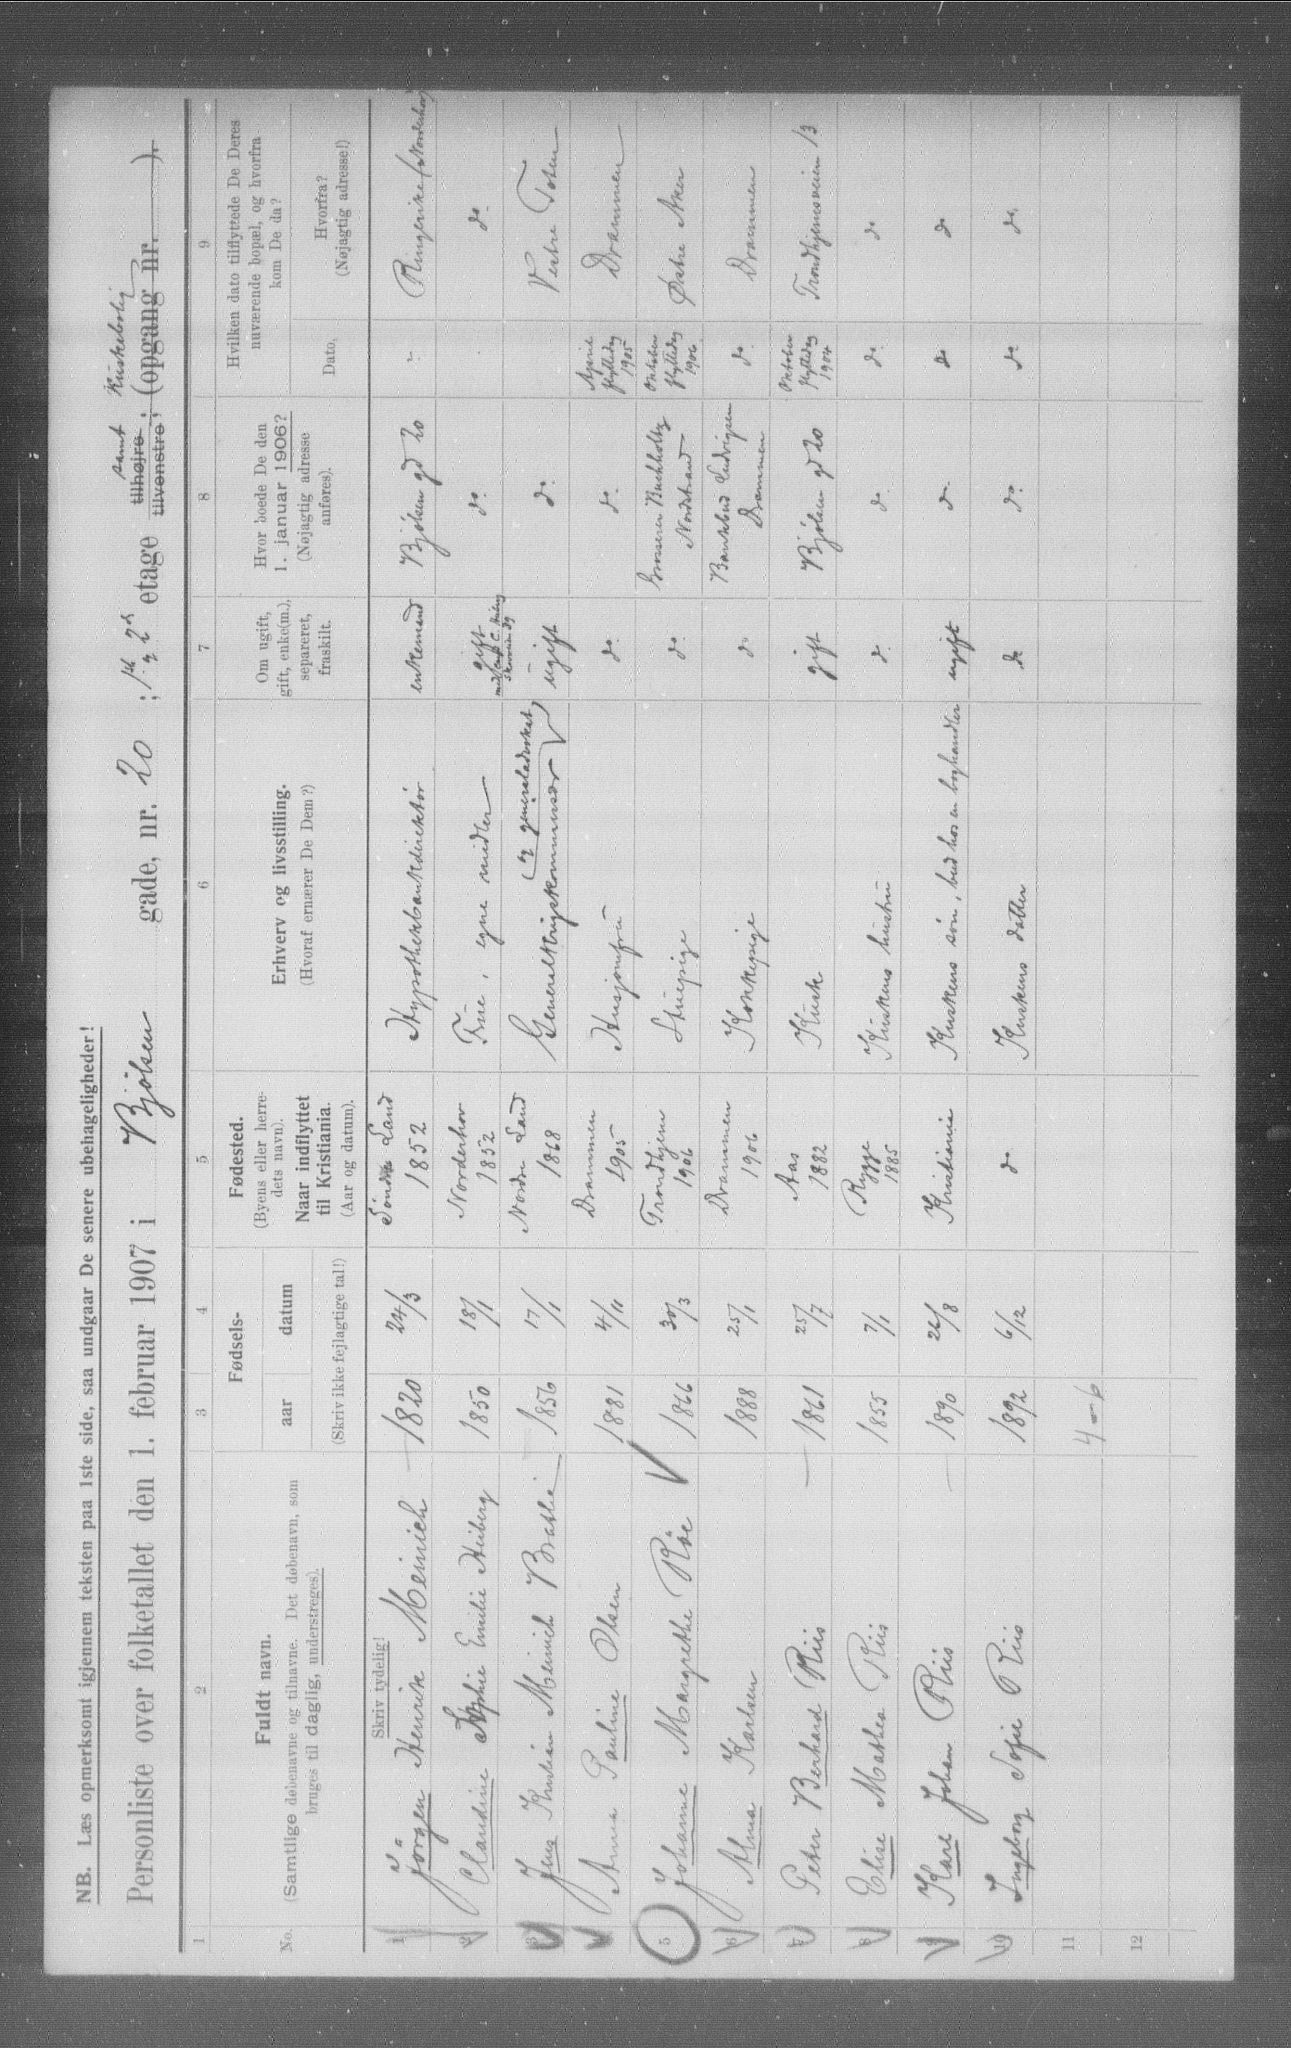 NB. Læs opmerksomt igjennem teksten paa 1ste side, saa undgaar De senere ubehageligheder!
Personliste over folketallet den 1. februar 1907 i Bjølsen gade, nr. 20 ; 1ste & 2d etage tilhøjre tilvenstre ; (opgang nr. ).
samt Kuskebolig
1 2 3 4 5 6 7 8 9
No.
Fuldt navn.
(Samtlige døbenavne og tilnavne. Det døbenavn, som
bruges til daglig, understreges).
Skriv tydelig!
Fødsels-
aar datum
(Skriv ikke fejlagtige tal!)
Fødested.
(Byens eller herre-
dets navn).
Naar indflyttet
til Kristiania.
(Aar og datum).
Erhverv og livsstilling.
(Hvoraf ernærer De Dem?)
Om ugift,
gift, enke(m.),
separeret,
fraskilt.
Hvor boede De den
1. januar 1906?
(Nøjagtig adresse
anføres).
Hvilken dato tilflyttede De Deres
nuværende bopæl, og hvorfra
kom De da?
Dato.
Hvorfra?
(Nøjagtig adresse!)
1 Jørgen Henrik Meinich 1820 24/3 Søndre Land 1852 Hypothekbankdirektør enkemand Bjølsen gd 20 Ringerike (Norderhov)
2 Claudine Sophie Emilie Heiberg 1850 18/1 Norderhov 1852 Frue, egne midler gift do. do.
3 Jens Kristian Meinich Bratlie 1856 17/1 Nordre Land 1868 Generalkrigskommissær (& generaladvokat) ugift do. Vestre Toten
4 Anna Pauline Olsen 1881 4/11 Drammen 1905 Husjomfru do. do. April flyttedag 1905 Drammen
5 Johanne Margrethe Röe 1866 30/3 Trondhjem 1906 Stuepige do. Grosserer Buchholtz Nordstrand Oktober flyttedag 1906 Østre Aker
6 Alma Karlsen 1888 25/1 Drammen 1906 Kokkepige do Bankbud Ludvigsen Drammen do. Drammen
7 Peter Berhard Riis 1861 25/7 Aas 1882 Kusk gift Bjølsen gd 20 Oktober flyttedag 1904 Trondhjemsveien 13
8 Elise Mathea Riis 1855 7/1 Rygge 1885 Kuskens hustru do. do. do. do
9 Karl Johan Riis 1890 26/8 Kristiania Kuskens søn, bud hos en boghandler ugift do. do do
10 Ingeborg Sofie Riis 1892 6/12 do Kuskens datter do do. do do.
11
4 - 6
12